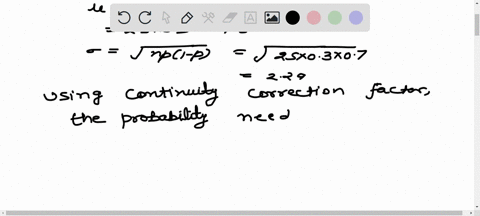 μ
σ = √np(1-p) = √25×0.3×0.7
= 2.29
using continuity correction factor,
the probability need